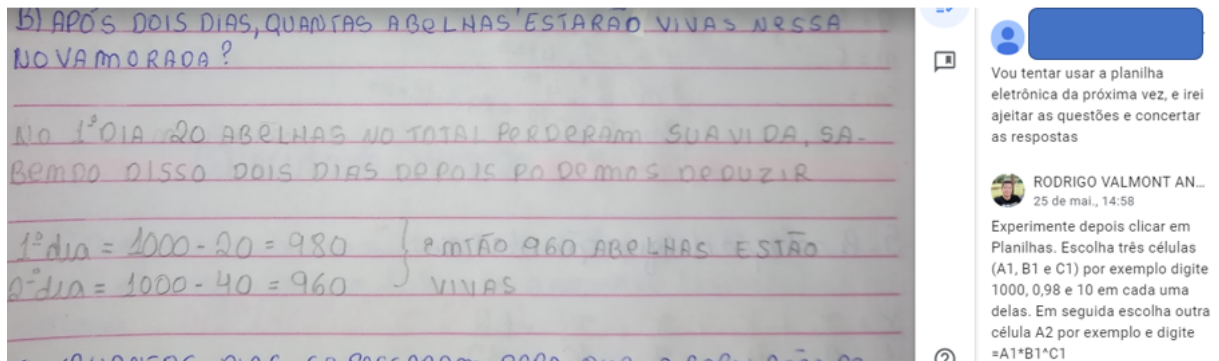 B) APÓS DOIS DIAS, QUANTAS ABELHAS ESTARÃO VIVAS NESSA
NOVA MORADA?
NO 1º DIA 20 ABELHAS NO TOTAL PERDERAM SUA VIDA, SA-
BEMDO DISSO DOIS DIAS DEPOIS PODEMOS DEDUZIR
1º dia = 1000 - 20 = 980
2º dia = 1000 - 40 = 960
EMTÃO 960 ABELHAS ESTÃO
VIVAS
Vou tentar usar a planilha
eletrônica da próxima vez, e irei
ajeitar as questões e concertar
as respostas
RODRIGO VALMONT AN...
25 de mai., 14:58
Experimente depois clicar em
Planilhas. Escolha três células
(A1, B1 e C1) por exemplo digite
1000, 0,98 e 10 em cada uma
delas. Em seguida escolha outra
célula A2 por exemplo e digite
=A1*B1^C1